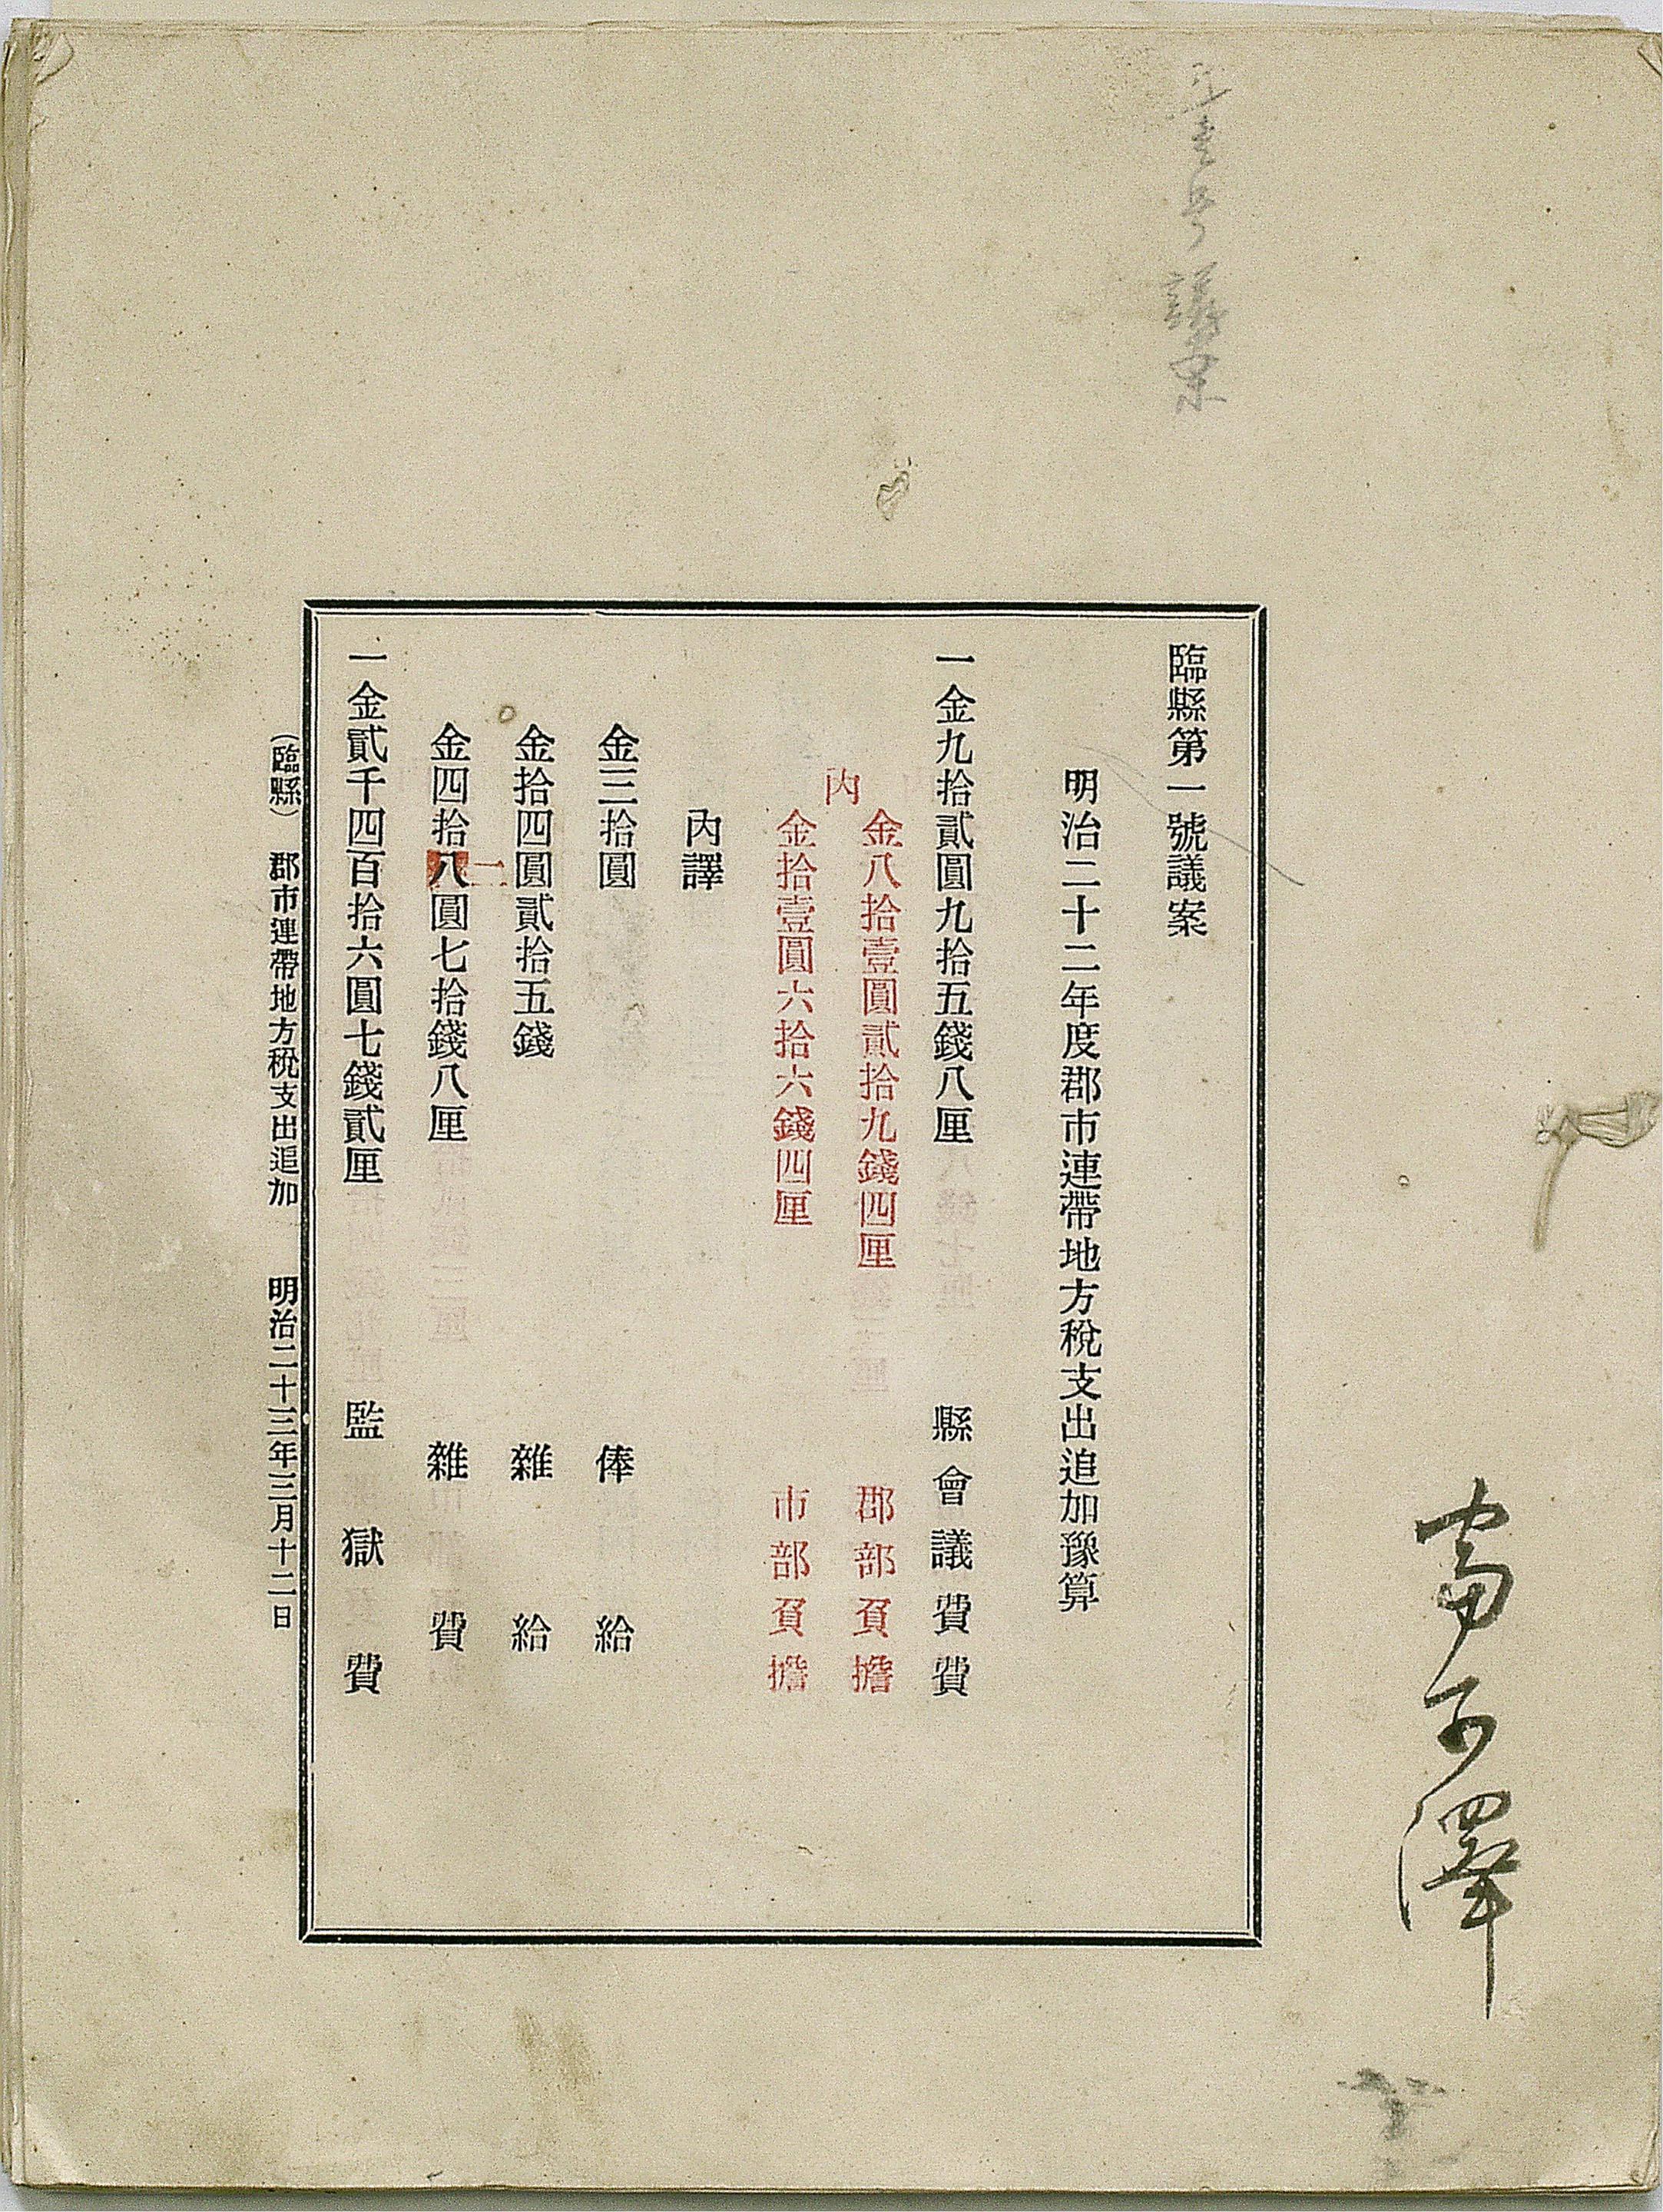 臨縣第一號議案
明治二十二年度郡市連帶地方稅支出追加豫算
一金九拾貳圓九拾五錢八厘 縣會議費費
內
金八拾壹圓貳拾九錢四厘 郡部負擔
金拾壹圓六拾六錢四厘 市部負擔
內譯
金三拾圓 俸給
金拾四圓貳拾五錢 雜給
金四拾八圓七拾錢八厘 雜費
一金貳千四百拾六圓七錢貳厘 監獄費
(臨縣) 郡市連帶地方稅支出追加 明治二十三年三月十二日
議案
澤